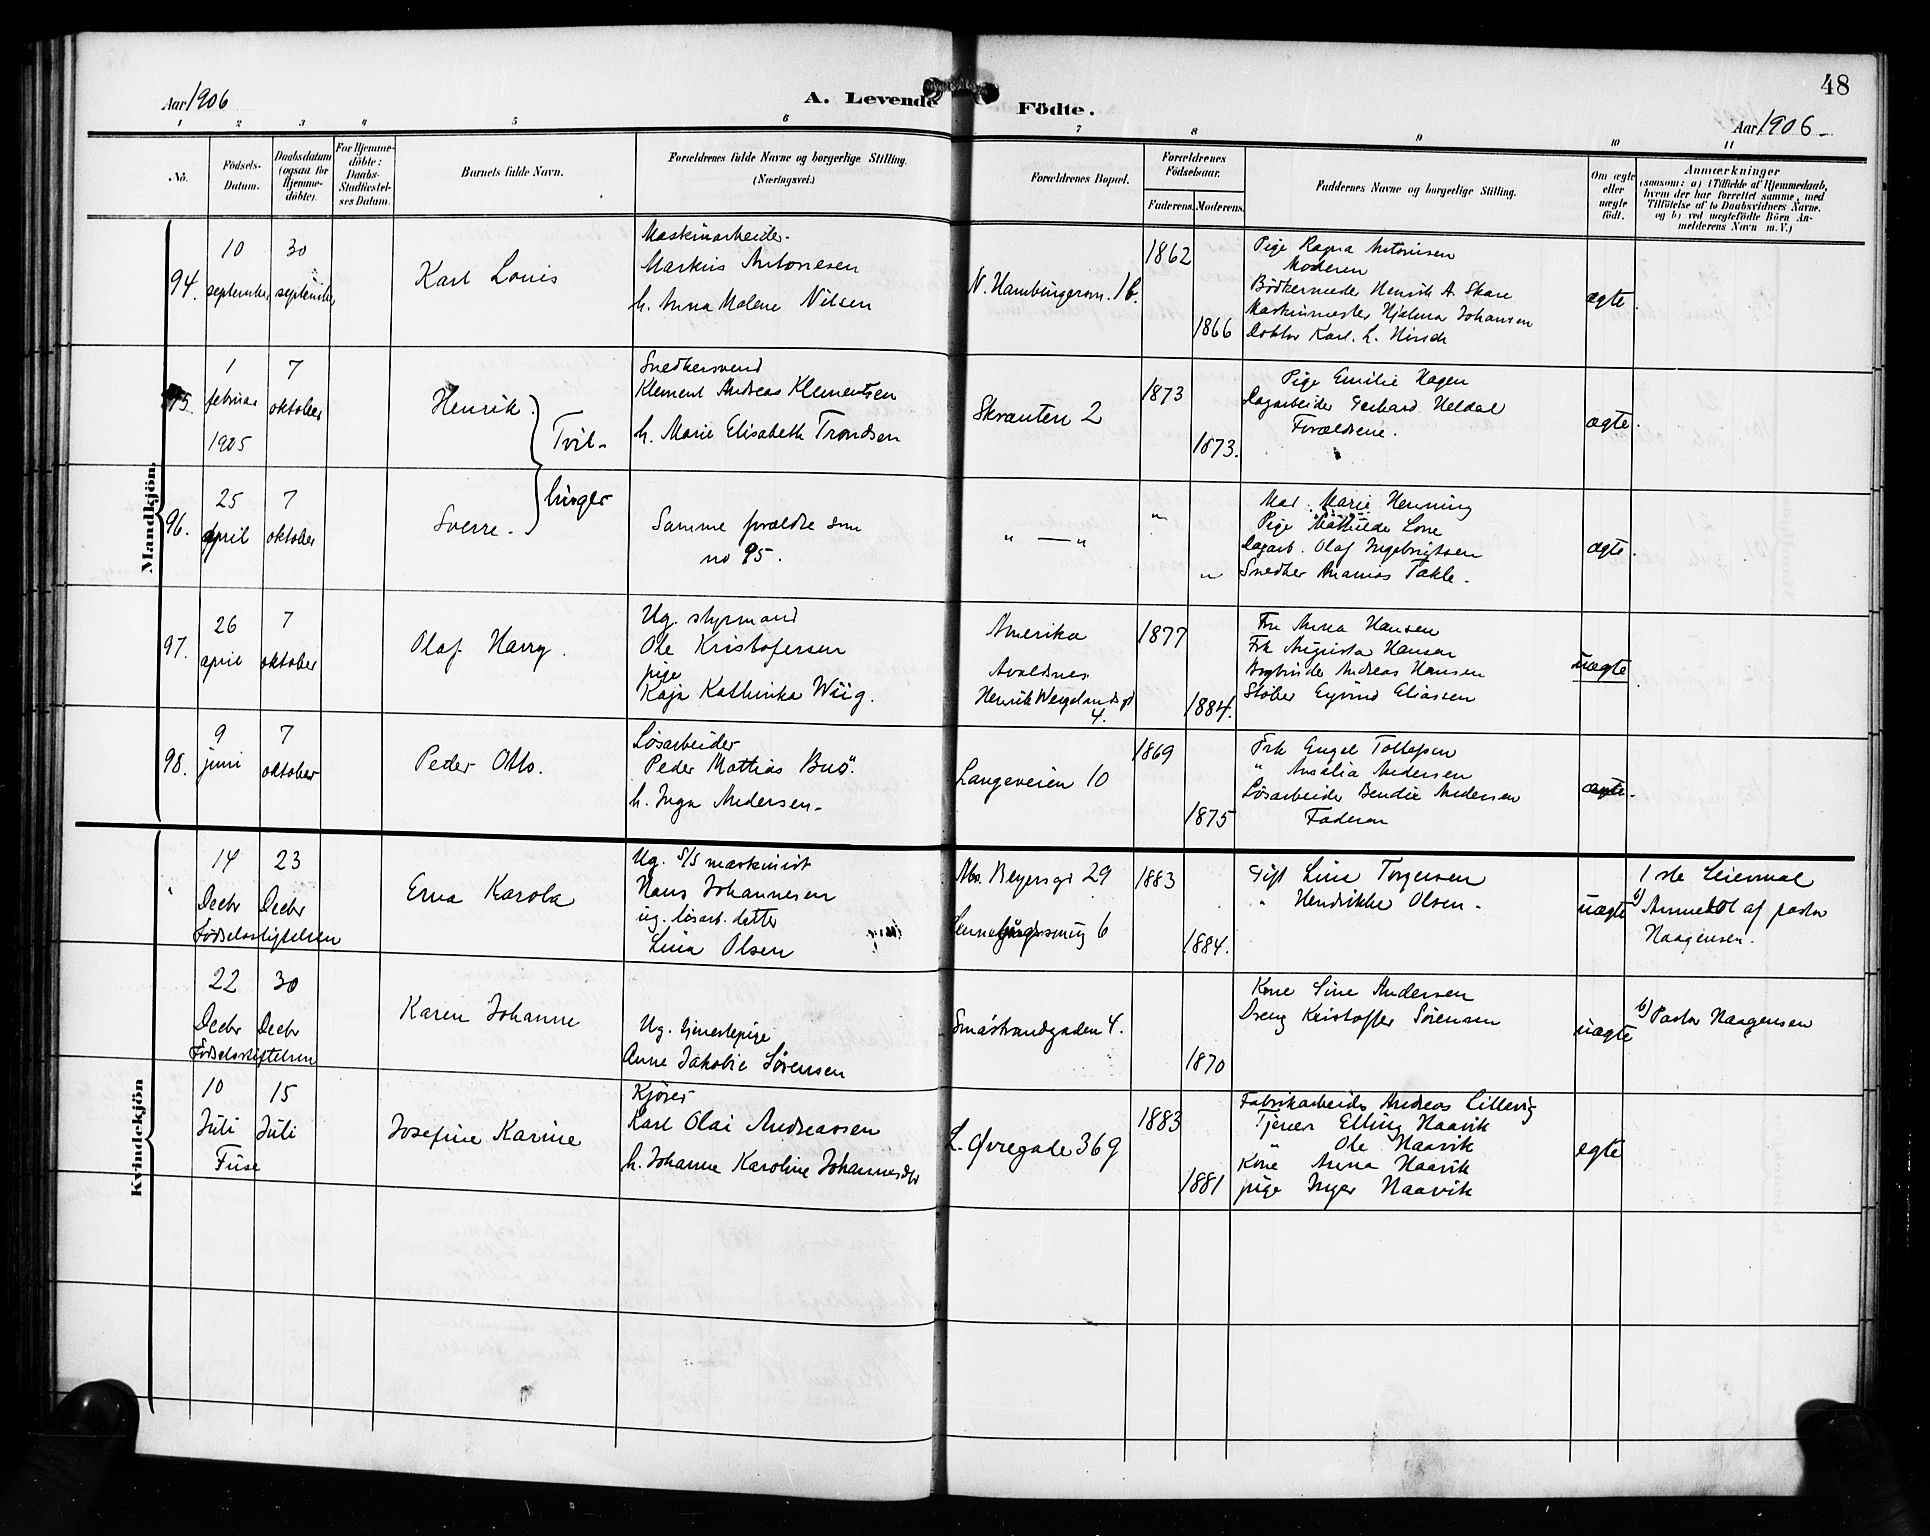 48
Aar 1906
A. Levende Födte.
Aar 1906
1 2 3 4 5 6 7 8 9 10 11
No.
Födsels-Datum.
Daabsdatum (ogsaa for Hjemme-döbte).
For Hjemme-döbte: Daabs-Stadfæstel-ses Datum.
Barnets fulde Navn.
Forældrenes fulde Navne og borgerlige Stilling.
(Næringsvei.)
Forældrenes Bopæl.
Forældrenes Födselsaar.
Faderens. Moderens.
Faddernes Navne og borgerlige Stilling.
Om ægte eller uægte födt.
Anmærkninger
(saasom: a) i Tilfælde af Hjemmedaab, hvem der har forrettet samme, med Tilföielse af to Daabsvidners Navne, og b) ved uægtefödte Börn An-melderens Navn m. V.)
Mandkjön.
94.
10 september
30 september
Karl Louis
Maskinarbeider
Markus Antonesen
h. Anna Malene Nilsen
N. Hamburgersm. 1b.
1862
1866
Pige Ragna Antonisen
Moderen
Bödkermester Henrik A. Skare
Maskinmester Hjalmar Johansen
Doktor Karl. L.
ægte
95.
1 februar 1905
7 oktober
Henrik.
Tvil-
Snedkersvend
Klement Andreas Klementsen
h. Marie Elisabeth Trondsen
Skranten 2
1873
1873.
Pige Emilie Hagen
Dagarbeider Gerhard Heldal
Forældrene.
ægte.
96.
25 april
7 oktober
Sverre.
linger
Samme forældre som
no 95.
" — "
"
"
Mad. Marie Henning
Pige Mathilde Lone
Dagarb. Olaf Ingebrigtsen
Snedker Ananias Takle.
ægte.
97.
26 april
7 oktober
Olaf Harry.
Ug. styrmand
Ole Kristofersen
pige
Kaja Kathinka Wiig.
Amerika
Avaldsnes
Henrik Wergelandsgt 4.
1877
1884.
Fru Anna Hansen
Frk Augusta Hansen
Andreas Hansen
Støber Eyvind Eliassen
uægte
98.
9 juni
7 oktober
Peder Otto.
Løsarbeider
Peder Mathias Buö.
h. Inga Andersen.
Langeveien 10
1869
1875
Frk Engel Tollefsen
" Amalia Andersen
Løsarbeider Bendix Andersen
Faderen
ægte.
Kvindekjön
14 Decbr
23 Decbr
Fødselsstiftelsen
Erna Karola
Ug. S/S maskinist
Hans Johannesen
ug. løsarb. datter
Lina Olsen
Abs. Beyersgt 29
6
1883
1884.
Gift Lina Torgersen
" Hendrikke Olsen.
uægte
1ste Leiermaal
b) Anmeldt af pastor
Haagensen.
22 Decbr
30 Decbr
Fødselsstiftelsen
Karen Johanne
Ug. tjenestepige
Anne Jakobie Sørensen
Smástrandgaden 4.
1870
Kone Sine Andersen
Dreng Kristoffer Sörensen
uægte
b) Pastor Haagensen
10 Juli
15 Juli
Fuse
Josefine Karine
Kjører
Karl Olai Andreassen
h. Johanne Karoline Johannesdtr
L. Øvregade 369
1883
1881
Fabrikarbeider Andreas Lillevig
Tjener Elling Haavik
" Ole Haavik
Kone Anna Haavik
pige Inger Haavik
egte